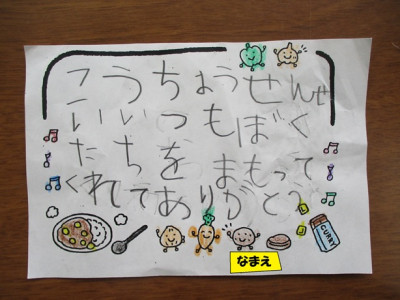 こうちょうせんせ
いいつもぼく
たちをまもって
くれてありがとう
CURRY
なまえ